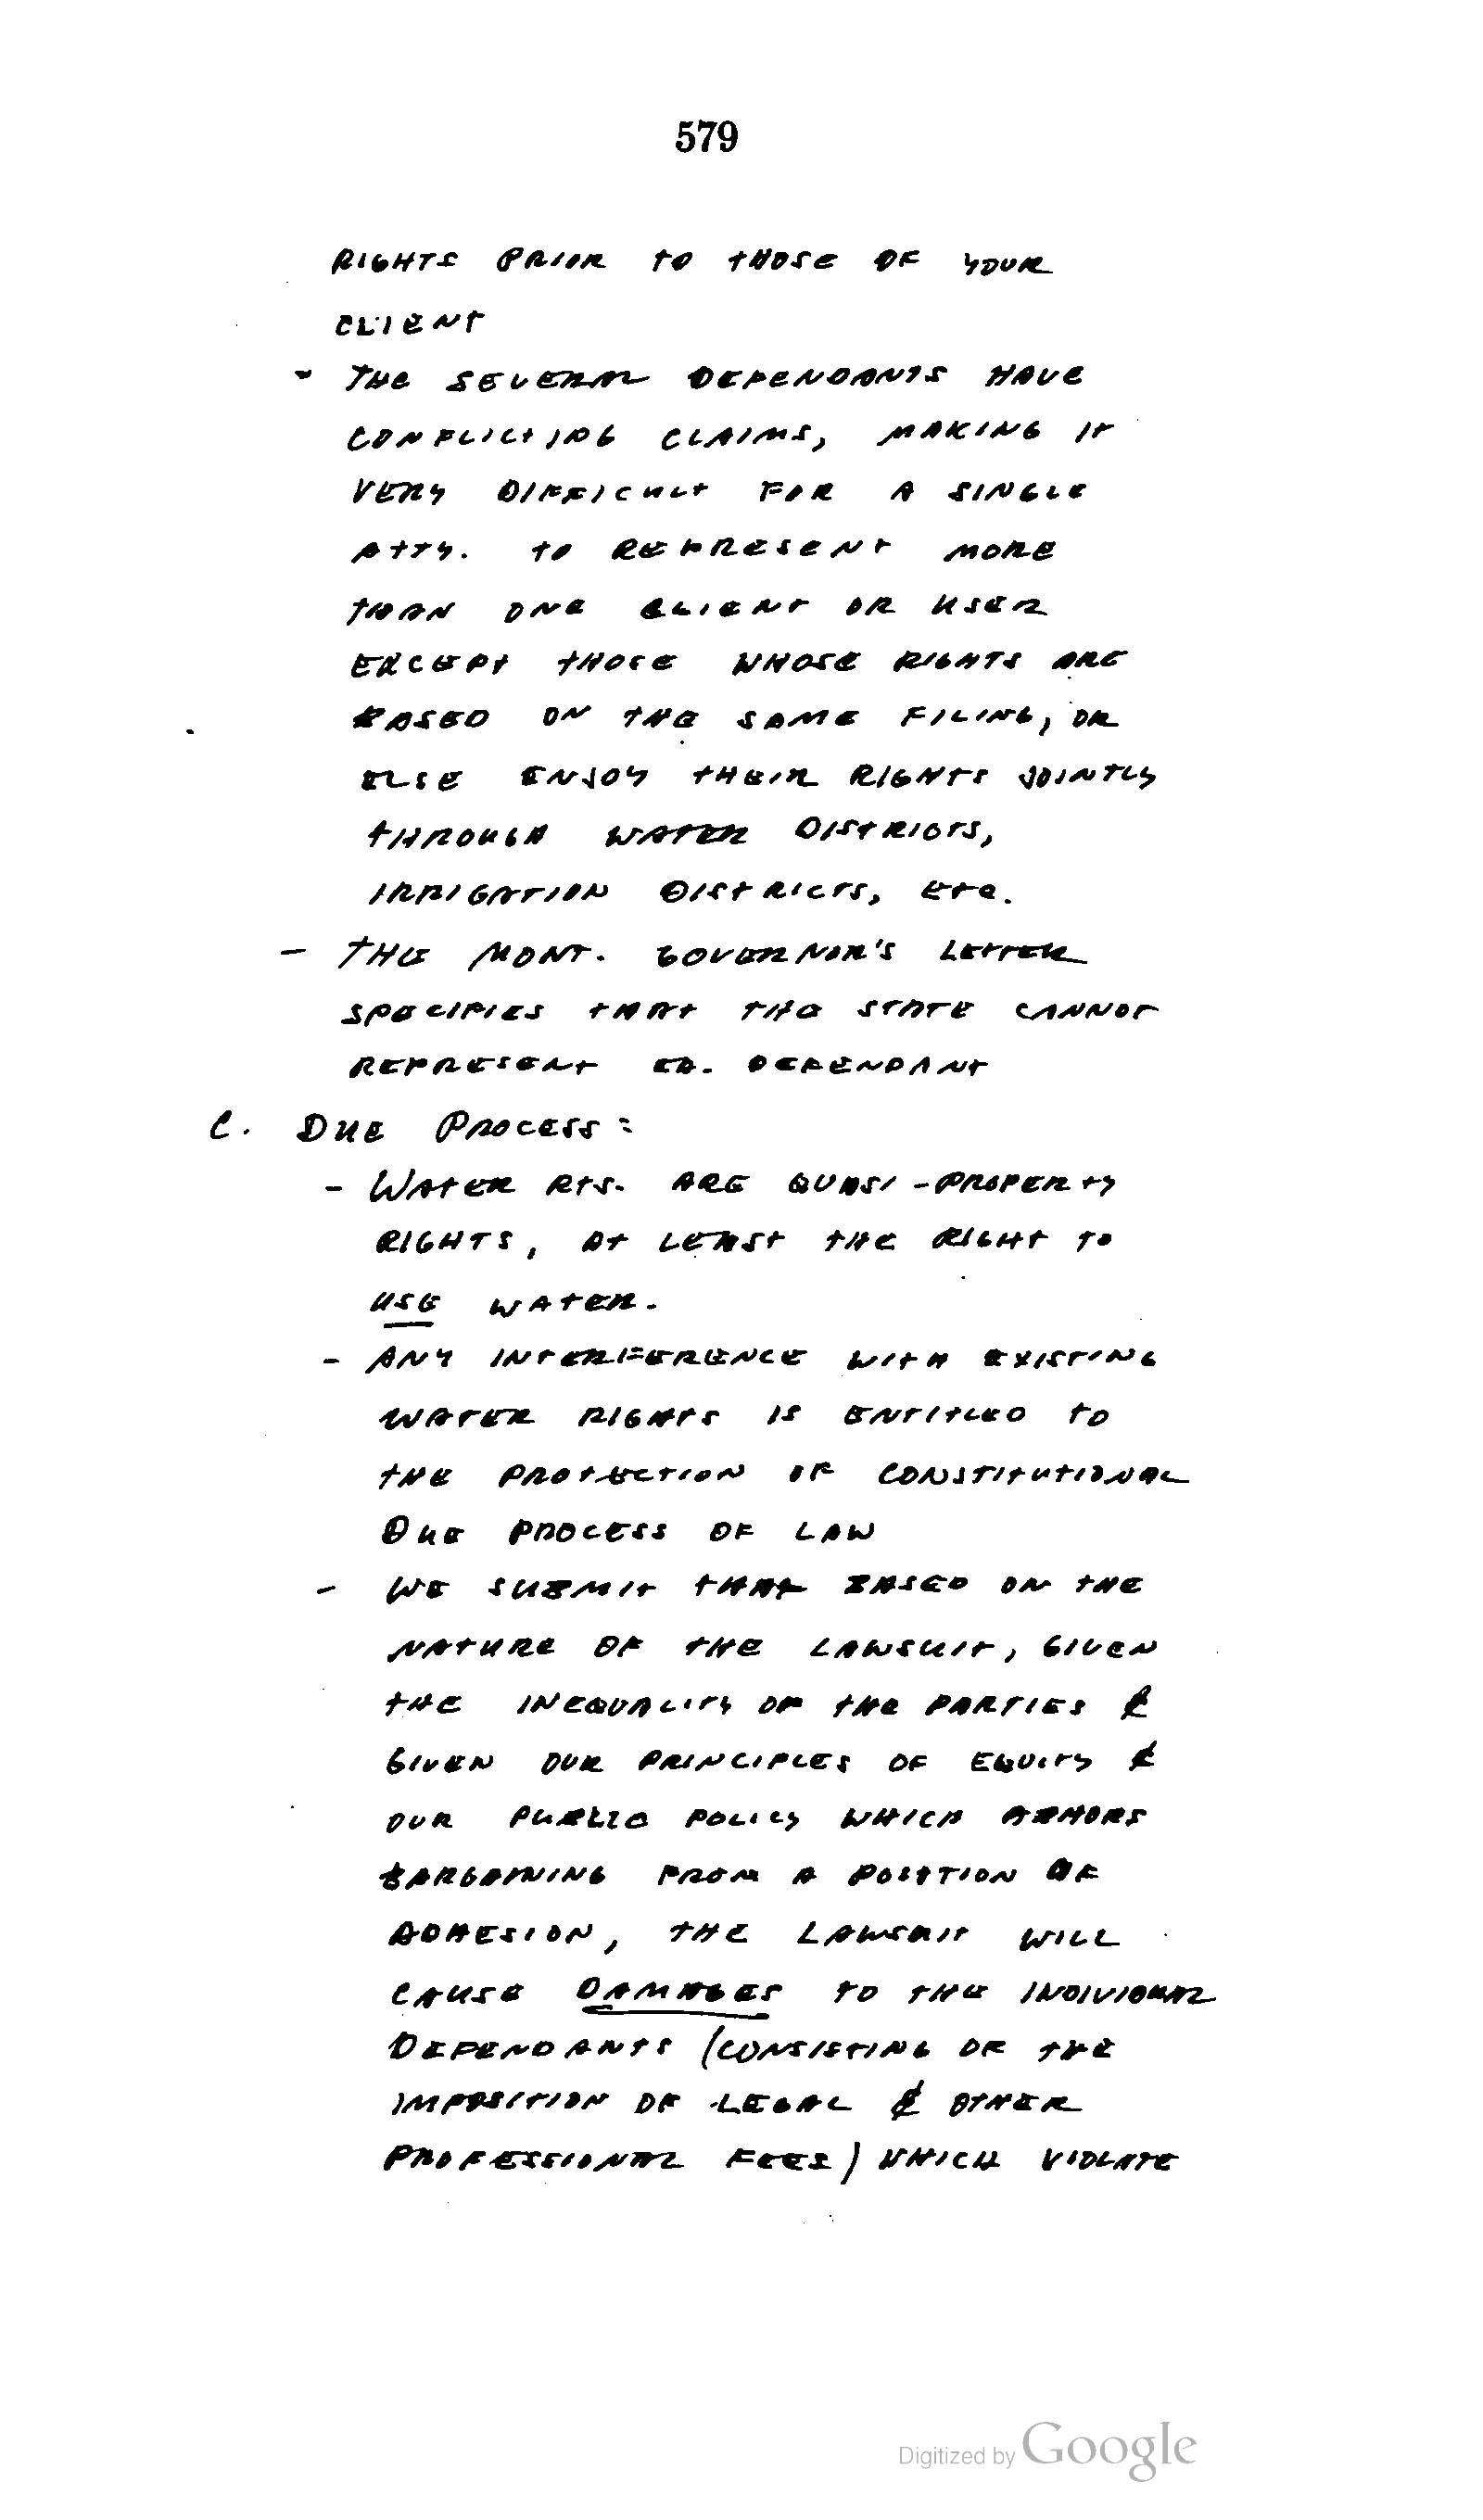 579
RIGHTS PRIOR TO THOSE OF YOUR
CLIENT
- THE SEVERAL DEFENDANTS HAVE
CONFLICTING CLAIMS, MAKING IT
VERY DIFFICULT FOR A SINGLE
ATTY. TO REPRESENT MORE
THAN ONE CLIENT OR USER
EXCEPT THOSE WHOSE RIGHTS ARE
BASED ON THE SAME FILING, OR
ELSE ENJOY THEIR RIGHTS JOINTLY
THROUGH WATER DISTRICTS,
IRRIGATION DISTRICTS, ETC.
- THE MONT. GOVERNOR'S LETTER
SPECIFIES THAT THE STATE CANNOT
REPRESENT EA. DEFENDANT
C. DUE PROCESS:
- WATER RTS. ARE QUASI-PROPERTY
RIGHTS, AT LEAST THE RIGHT TO
USE WATER.
- ANY INTERFERENCE WITH EXISTING
WATER RIGHTS IS ENTITLED TO
THE PROTECTION OF CONSTITUTIONAL
DUE PROCESS OF LAW
- WE SUBMIT THAT BASED ON THE
NATURE OF THE LAWSUIT, GIVEN
THE INEQUALITY OF THE PARTIES &
GIVEN OUR PRINCIPLES OF EQUITY &
OUR PUBLIC POLICY WHICH ABHORS
BARGAINING FROM A POSITION OF
ADHESION, THE LAWSUIT WILL
CAUSE DAMAGES TO THE INDIVIDUAL
DEFENDANTS (CONSISTING OF THE
IMPOSITION OF LEGAL & OTHER
PROFESSIONAL FEES) WHICH VIOLATE
Digitized by Google